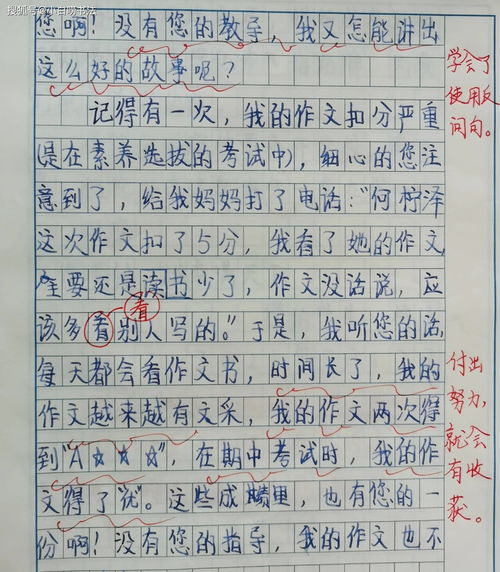 搜狐号@小白明书法
您啊！没有您的教导，我又怎能讲出
这么好的故事呢？
学会了
使用反
问句。
记得有一次，我的作文扣分严重
(是在素养选拔的考试中)，细心的您注
意到了，给我妈妈打了电话："何柠泽
这次作文扣了5分，我看了她的作文，
主要还是读书少了，作文没话说，应
看
该多看别人写的。"于是，我听您的话，
每天都会看作文书，时间长了，我的
作文越来越有文采，我的作文两次得
到"A☆☆☆"，在期中考试时，我的作
文得了"优"。这些成绩里，也有您的一
份啊！没有您的指导，我的作文也不
付出
努力，
就会
有收
获。